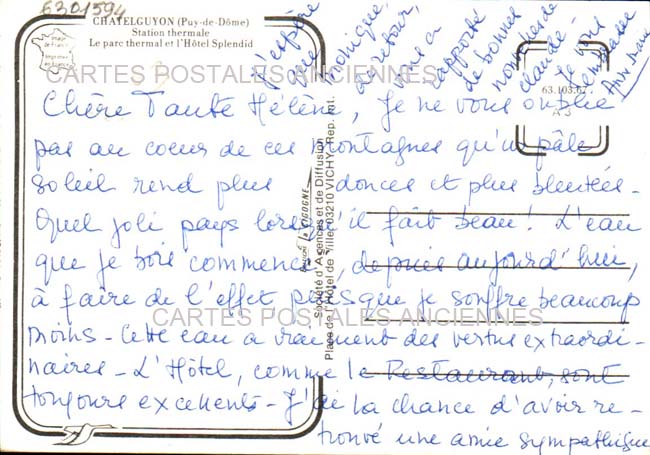 6301594
CHATELGUYON (Puy-de-Dôme)
Station thermale
Le parc thermal et l'Hôtel Splendid
CARTES POSTALES ANCIENNES
63.103.67
A 3
Chère Tante Hélène, Je ne vous oublie
pas au coeur de ces montagnes qu'un pâle
soleil rend plus douces et plus bleutées -
Quel joli pays lorsqu'il fait beau! L'eau
que je bois commence, depuis aujourd'hui,
à faire de l'effet puisque je souffre beaucoup
moins - Cette eau a vraiment des vertus extraordi-
naires - L'Hôtel, comme le Restaurant, sont
toujours excellents - J'ai la chance d'avoir re-
trouvé une amie sympathique
J'espère
que
Monique,
au retour,
vous a
rapporté
de bonnes
nouvelles de
Claude -
Je vous
embrasse
CARTES POSTALES ANCIENNES
LA CIGOGNE
Société d'Agences et de Diffusion
Place de l'Hôtel de Ville, 03210 VICHY. Rep. Int.